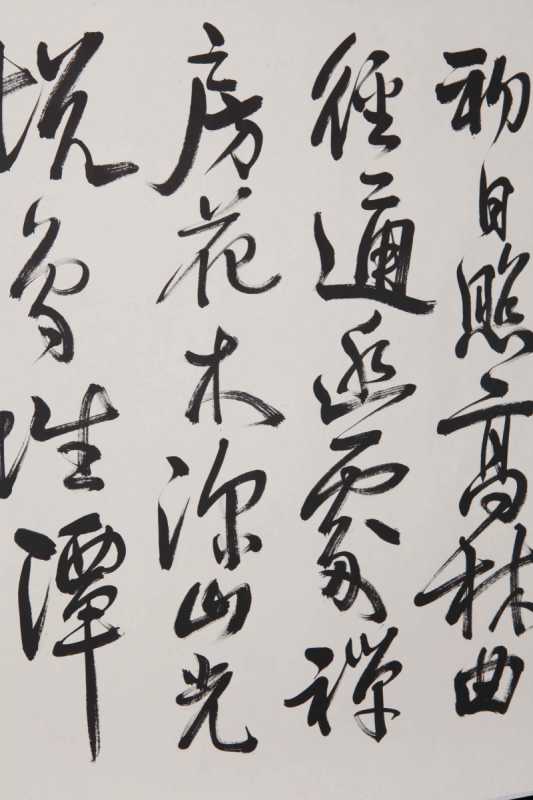 初日照高林曲
徑通幽處禪
房花木深山光
悦鳥性潭